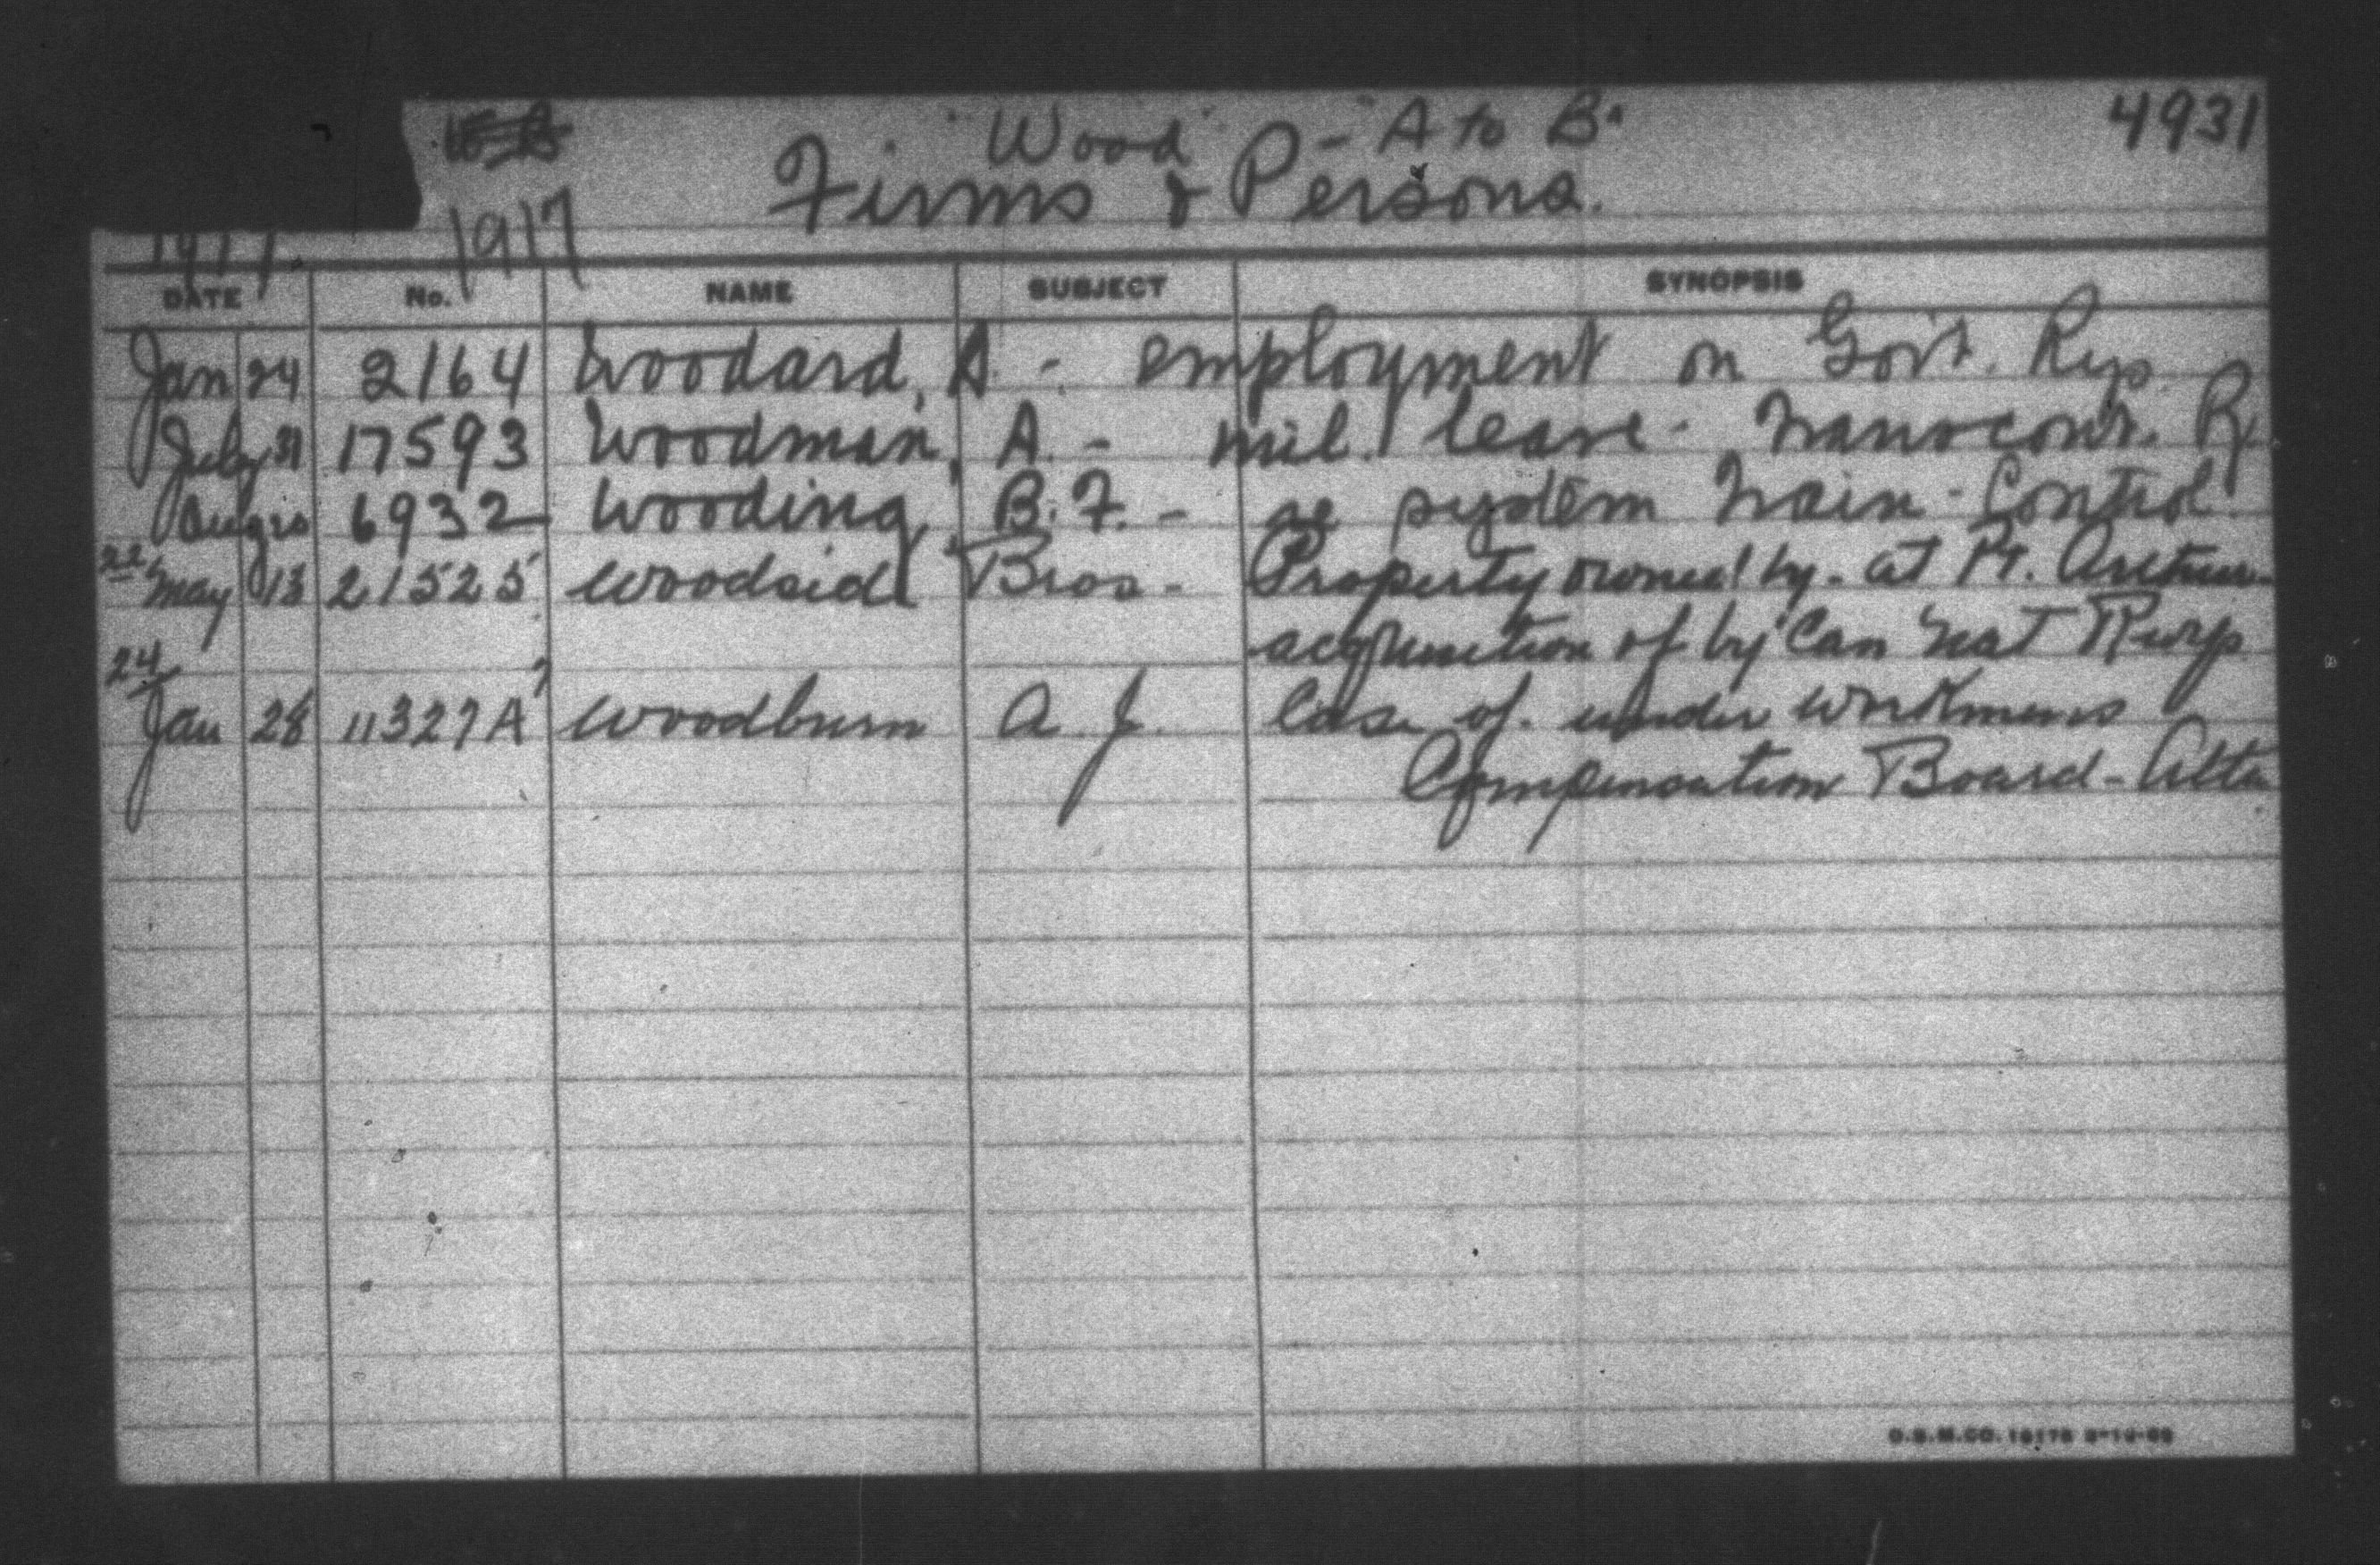 "Wood" - "A to B" 4931
Firms & Persons.
1917. 1917
DATE No. NAME SUBJECT SYNOPSIS
Jan 24 2164 Woodard, A - employment on Gov't. Rys.
July 31 17593 Woodman, A. - mil. leave - Transcont. Ry
Aug 20 6932 Wooding, B.F. - re system Train-Control
22 May 13 21525 Woodside Bros - Property owned by - at Pt. Arthur -
acquisition of by Can Nat Rwys
24
Jan 28 11327A Woodburn A. J. Case of. under Workmens
Compensation Board - Alta
O.S.M.CO.